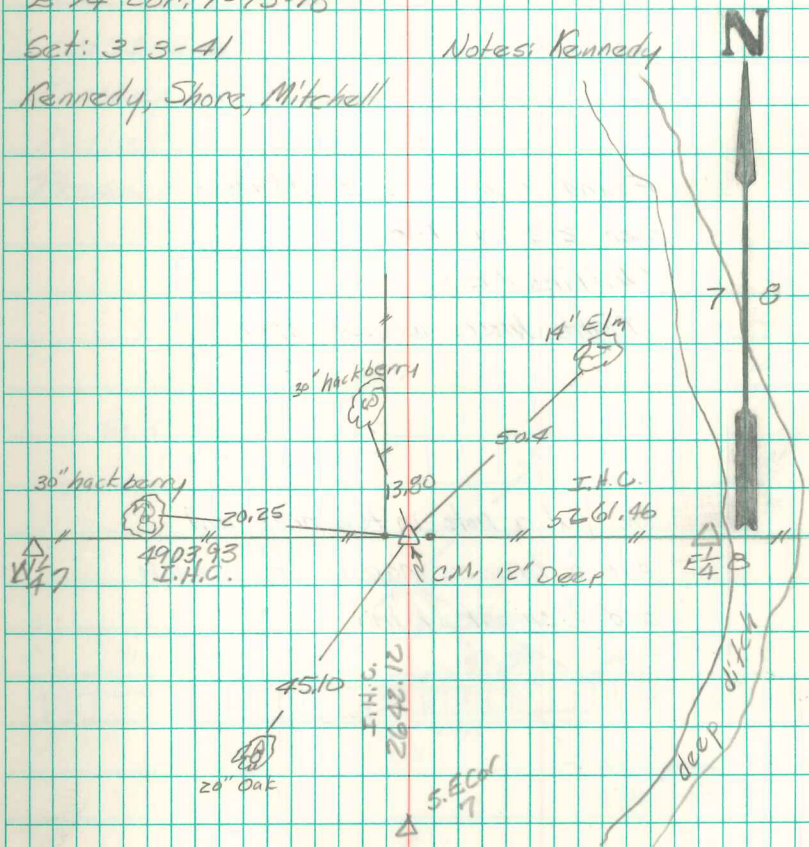 E 1/4 Cor. 7-15-16
Set: 3-3-41
Notes: Kennedy
Kennedy, Shore, Mitchell
N
7 8
14" Elm
30" hackberry
50.4
13.80
30" hackberry
20.25
I.H.C.
5261.46
4903.93
I.H.C.
W 1/4 7
E 1/4 8
C.M. 12" Deep
45.10
I.H.C.
2642.12
20" Oak
deep ditch
S.E Cor
7